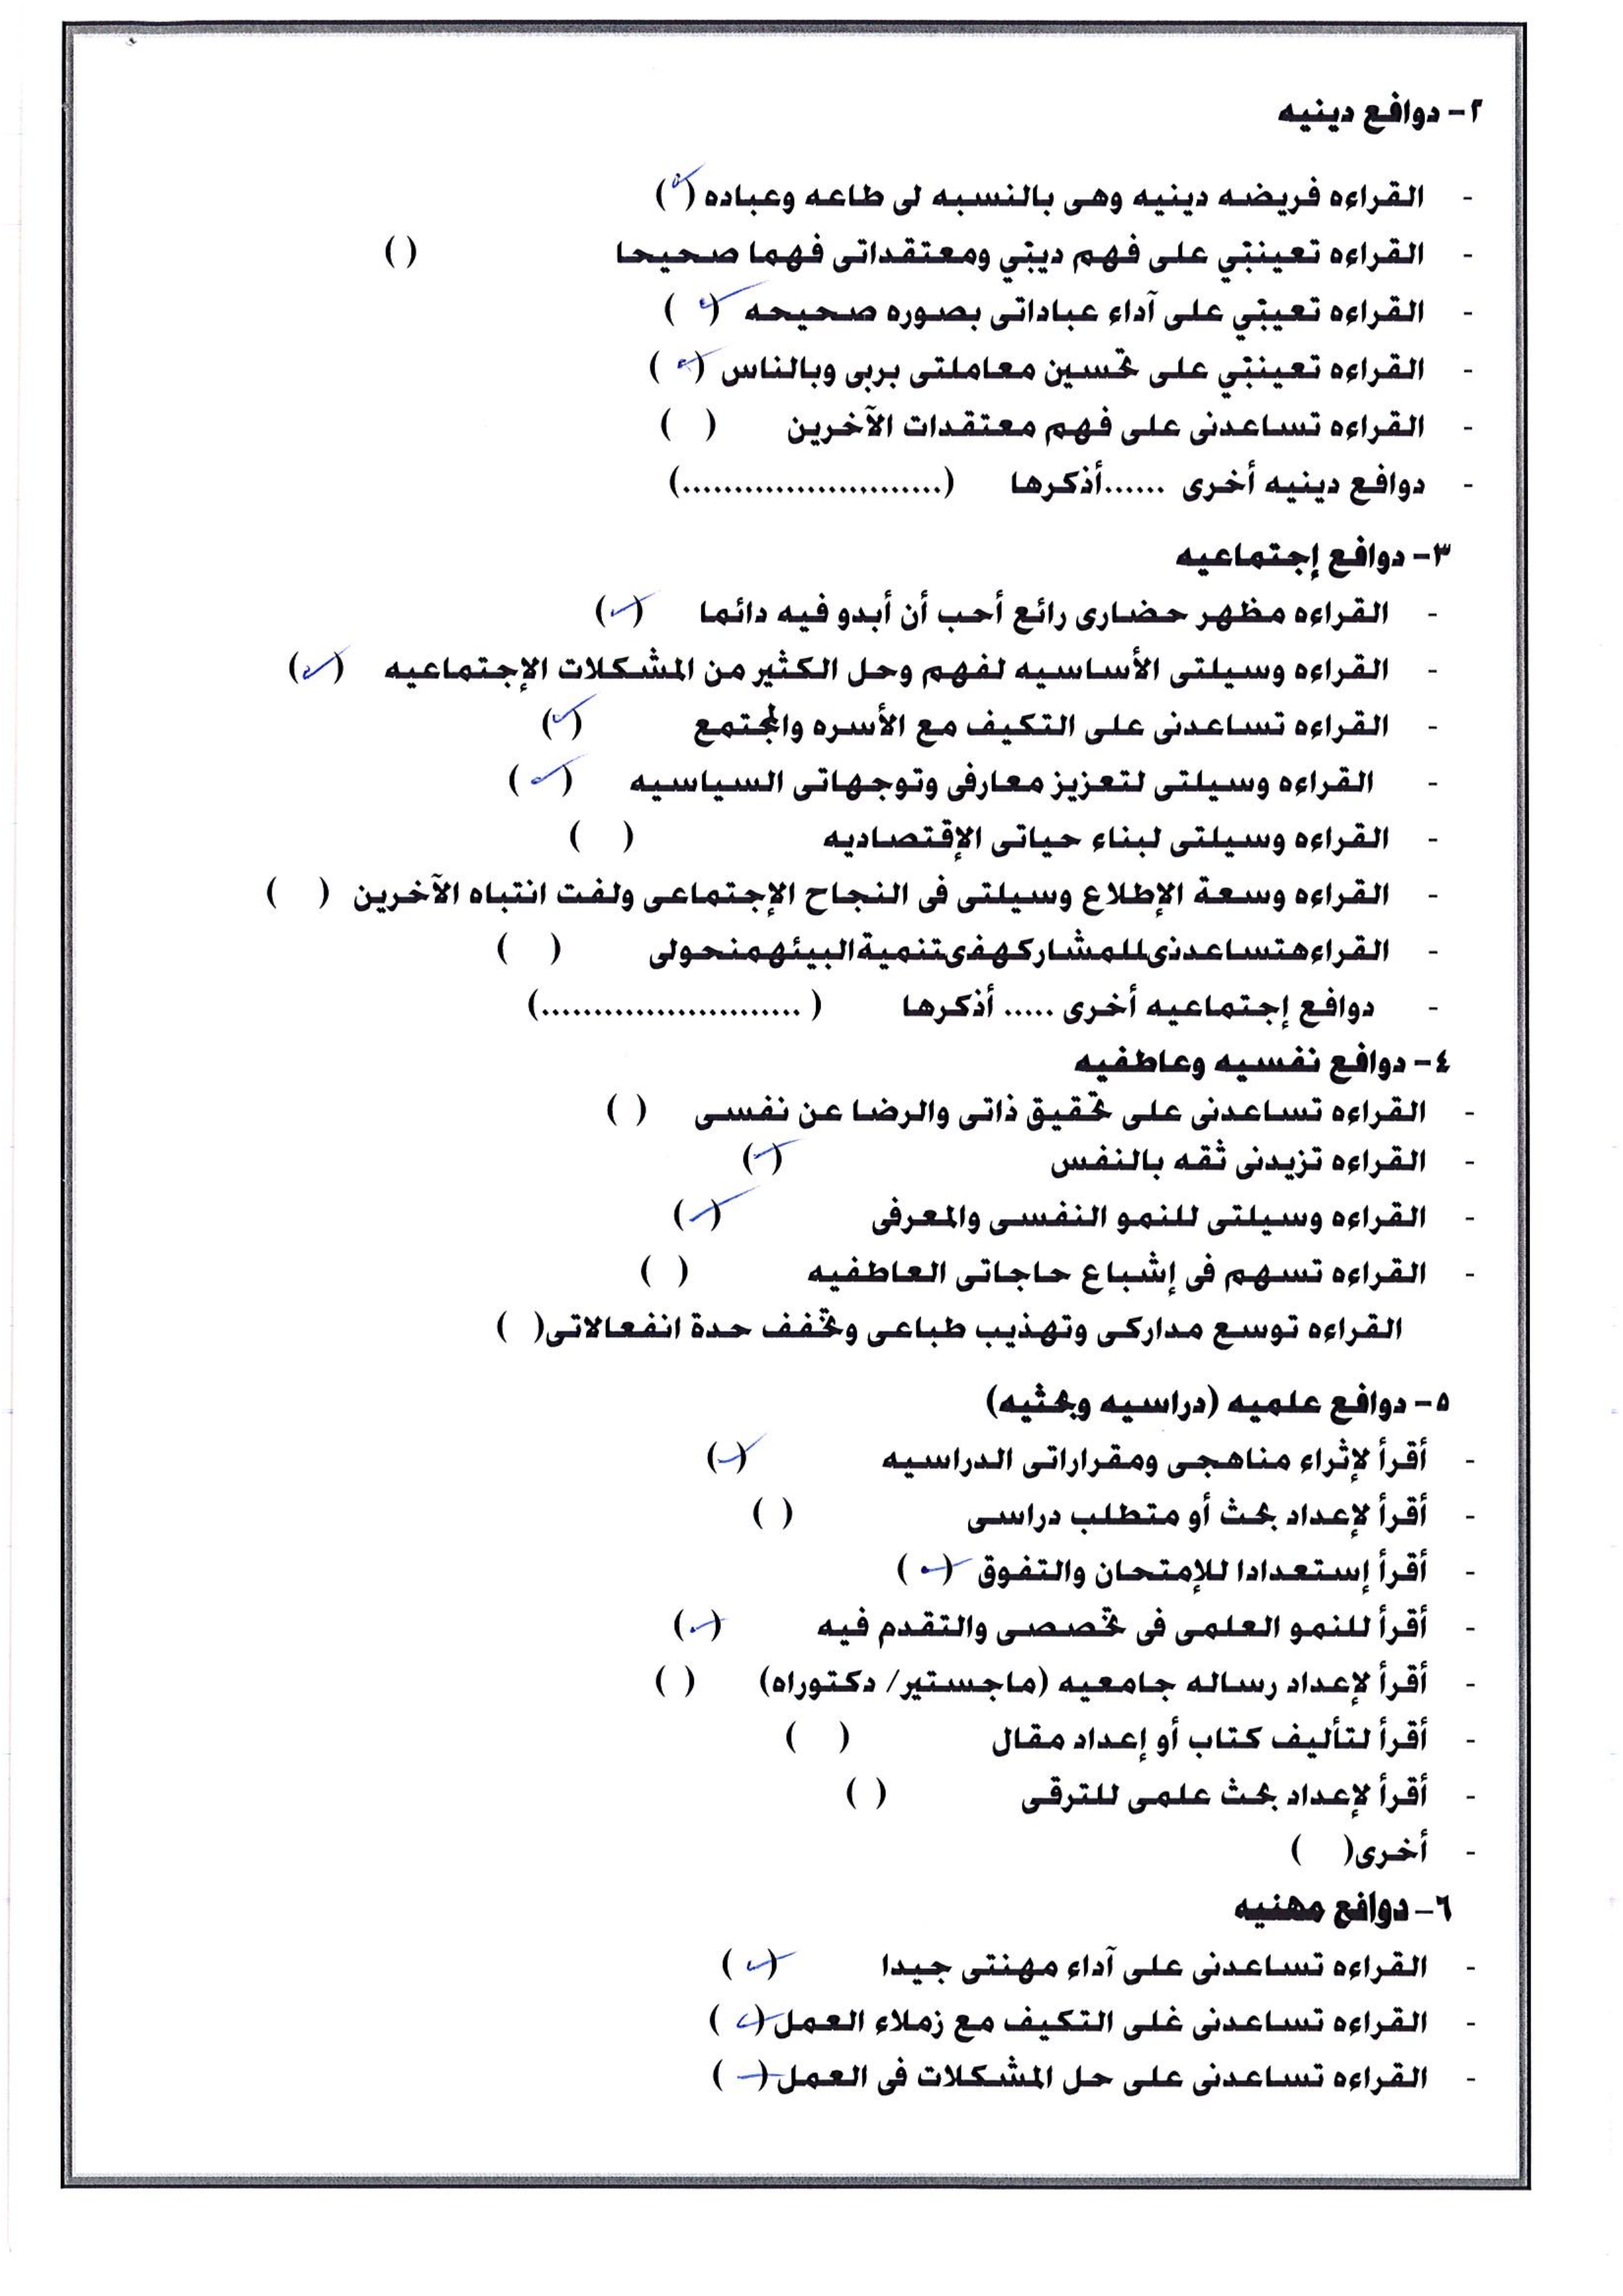 ٢- دوافع دينيه
- القراءه فريضه دينيه وهى بالنسبه لى طاعه وعباده (✓)
- القراءه تعينني على فهم ديني ومعتقداتى فهما صحيحا ( )
- القراءه تعيني على آداء عباداتى بصوره صحيحه (✓)
- القراءه تعينني على تحسين معاملتى بربى وبالناس (✓)
- القراءه تساعدنى على فهم معتقدات الآخرين ( )
- دوافع دينيه أخرى ......أذكرها (.........................)
٣- دوافع إجتماعيه
- القراءه مظهر حضارى رائع أحب أن أبدو فيه دائما (✓)
- القراءه وسيلتى الأساسيه لفهم وحل الكثير من المشكلات الإجتماعيه (✓)
- القراءه تساعدنى على التكيف مع الأسره والمجتمع (✓)
- القراءه وسيلتى لتعزيز معارفى وتوجهاتى السياسيه (✓)
- القراءه وسيلتى لبناء حياتى الإقتصاديه ( )
- القراءه وسعة الإطلاع وسيلتى فى النجاح الإجتماعى ولفت انتباه الآخرين ( )
- القراءهتساعدنىللمشاركهفىتنميةالبيئهمنحولى ( )
- دوافع إجتماعيه أخرى ..... أذكرها ( .........................)
٤- دوافع نفسيه وعاطفيه
- القراءه تساعدنى على تحقيق ذاتى والرضا عن نفسى ( )
- القراءه تزيدنى ثقه بالنفس (✓)
- القراءه وسيلتى للنمو النفسى والمعرفى (✓)
- القراءه تسهم فى إشباع حاجاتى العاطفيه ( )
القراءه توسع مداركى وتهذيب طباعى وتخفف حدة انفعالاتى( )
٥- دوافع علميه (دراسيه وبحثيه)
- أقرأ لإثراء مناهجى ومقراراتى الدراسيه (✓)
- أقرأ لإعداد بحث أو متطلب دراسى ( )
- أقرأ إستعدادا للإمتحان والتفوق (✓)
- أقرأ للنمو العلمى فى تخصصى والتقدم فيه (✓)
- أقرأ لإعداد رساله جامعيه (ماجستير/ دكتوراه) ( )
- أقرأ لتأليف كتاب أو إعداد مقال ( )
- أقرأ لإعداد بحث علمى للترقى ( )
- أخرى( )
٦- دوافع مهنيه
- القراءه تساعدنى على آداء مهنتى جيدا (✓)
- القراءه تساعدنى غلى التكيف مع زملاء العمل(✓)
- القراءه تساعدنى على حل المشكلات فى العمل(✓)